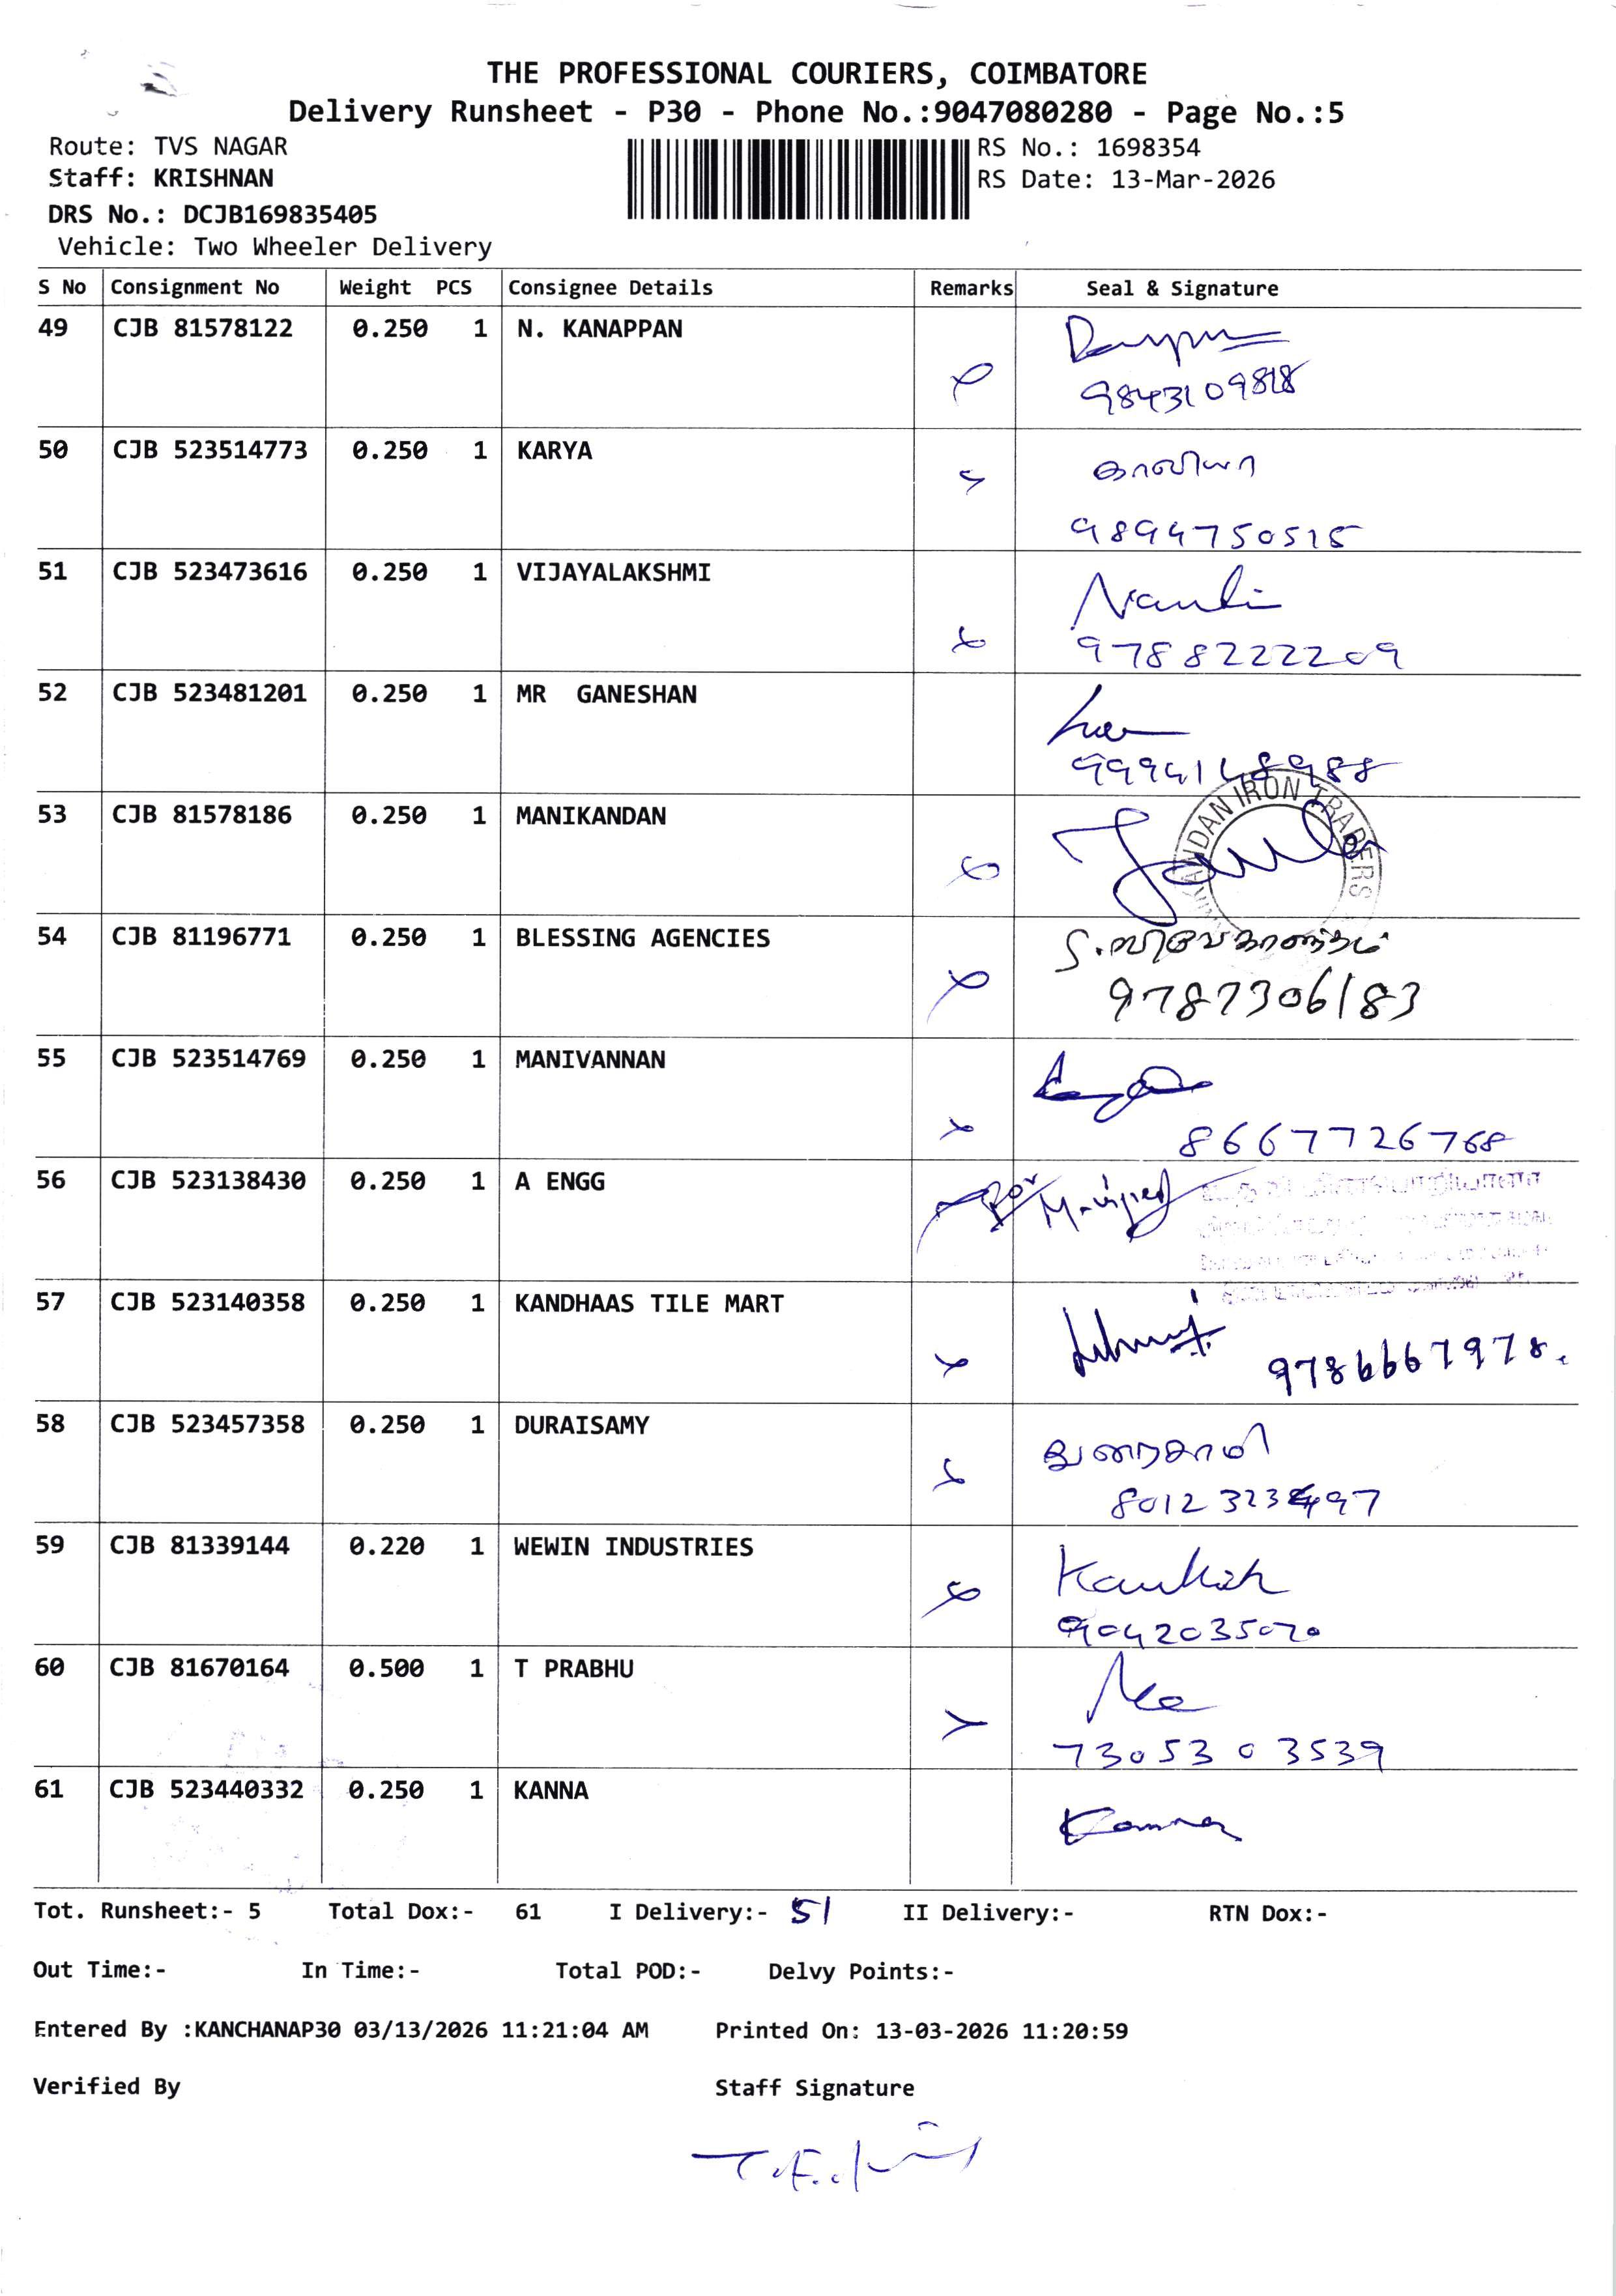 THE PROFESSIONAL COURIERS, COIMBATORE
Delivery Runsheet - P30 - Phone No.:9047080280 - Page No.:5
Route: TVS NAGAR
RS No.: 1698354
Staff: KRISHNAN
RS Date: 13-Mar-2026
DRS No.: DCJB169835405
Vehicle: Two Wheeler Delivery
S No Consignment No Weight PCS Consignee Details Remarks Seal & Signature
49 CJB 81578122 0.250 1 N. KANAPPAN
50 CJB 523514773 0.250 1 KARYA
9894750515
51 CJB 523473616 0.250 1 VIJAYALAKSHMI
9788222209
52 CJB 523481201 0.250 1 MR GANESHAN
53 CJB 81578186 0.250 1 MANIKANDAN
IRON TRADERS
54 CJB 81196771 0.250 1 BLESSING AGENCIES
9787306183
55 CJB 523514769 0.250 1 MANIVANNAN
8667726768
56 CJB 523138430 0.250 1 A ENGG
57 CJB 523140358 0.250 1 KANDHAAS TILE MART
9786667978.
58 CJB 523457358 0.250 1 DURAISAMY
59 CJB 81339144 0.220 1 WEWIN INDUSTRIES
9042035070
60 CJB 81670164 0.500 1 T PRABHU
7305303539
61 CJB 523440332 0.250 1 KANNA
Kanna
Tot. Runsheet:- 5 Total Dox:- 61 I Delivery:- 51 II Delivery:- RTN Dox:-
Out Time:- In Time:- Total POD:- Delvy Points:-
Entered By :KANCHANAP30 03/13/2026 11:21:04 AM Printed On: 13-03-2026 11:20:59
Verified By Staff Signature